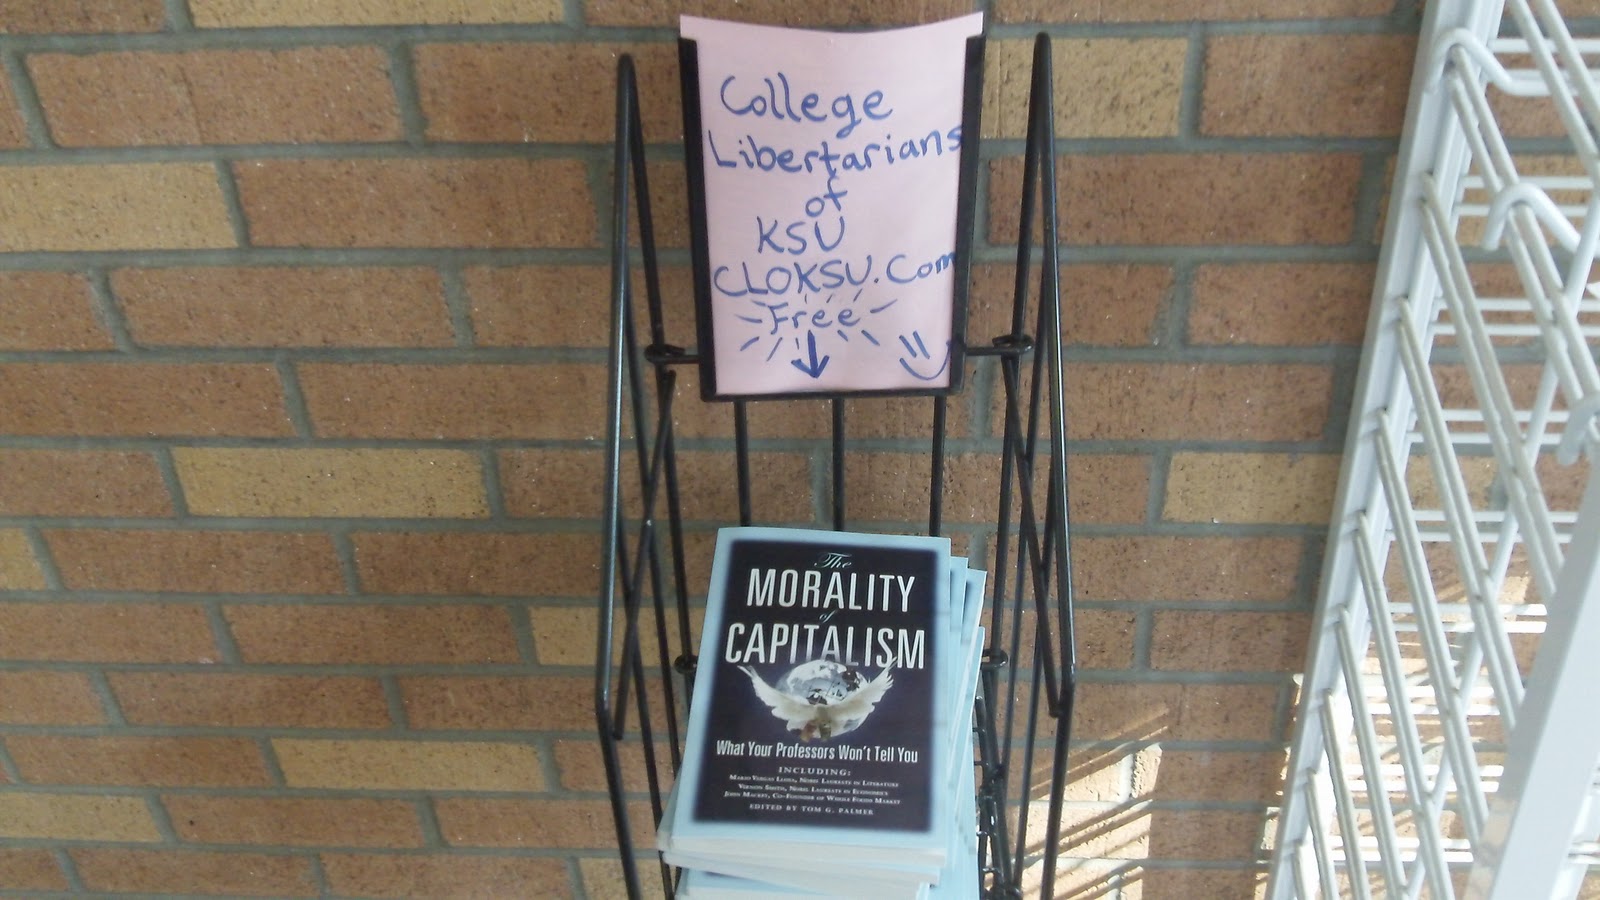 College
Libertarians
of
KSU
CLOKSU.Com
Free
The
MORALITY
of
CAPITALISM
What Your Professors Won't Tell You
INCLUDING:
MARIO VARGAS LLOSA, NOBEL LAUREATE IN LITERATURE
VERNON SMITH, NOBEL LAUREATE IN ECONOMICS
JOHN MACKEY, CO-FOUNDER OF WHOLE FOODS MARKET
EDITED BY TOM G. PALMER